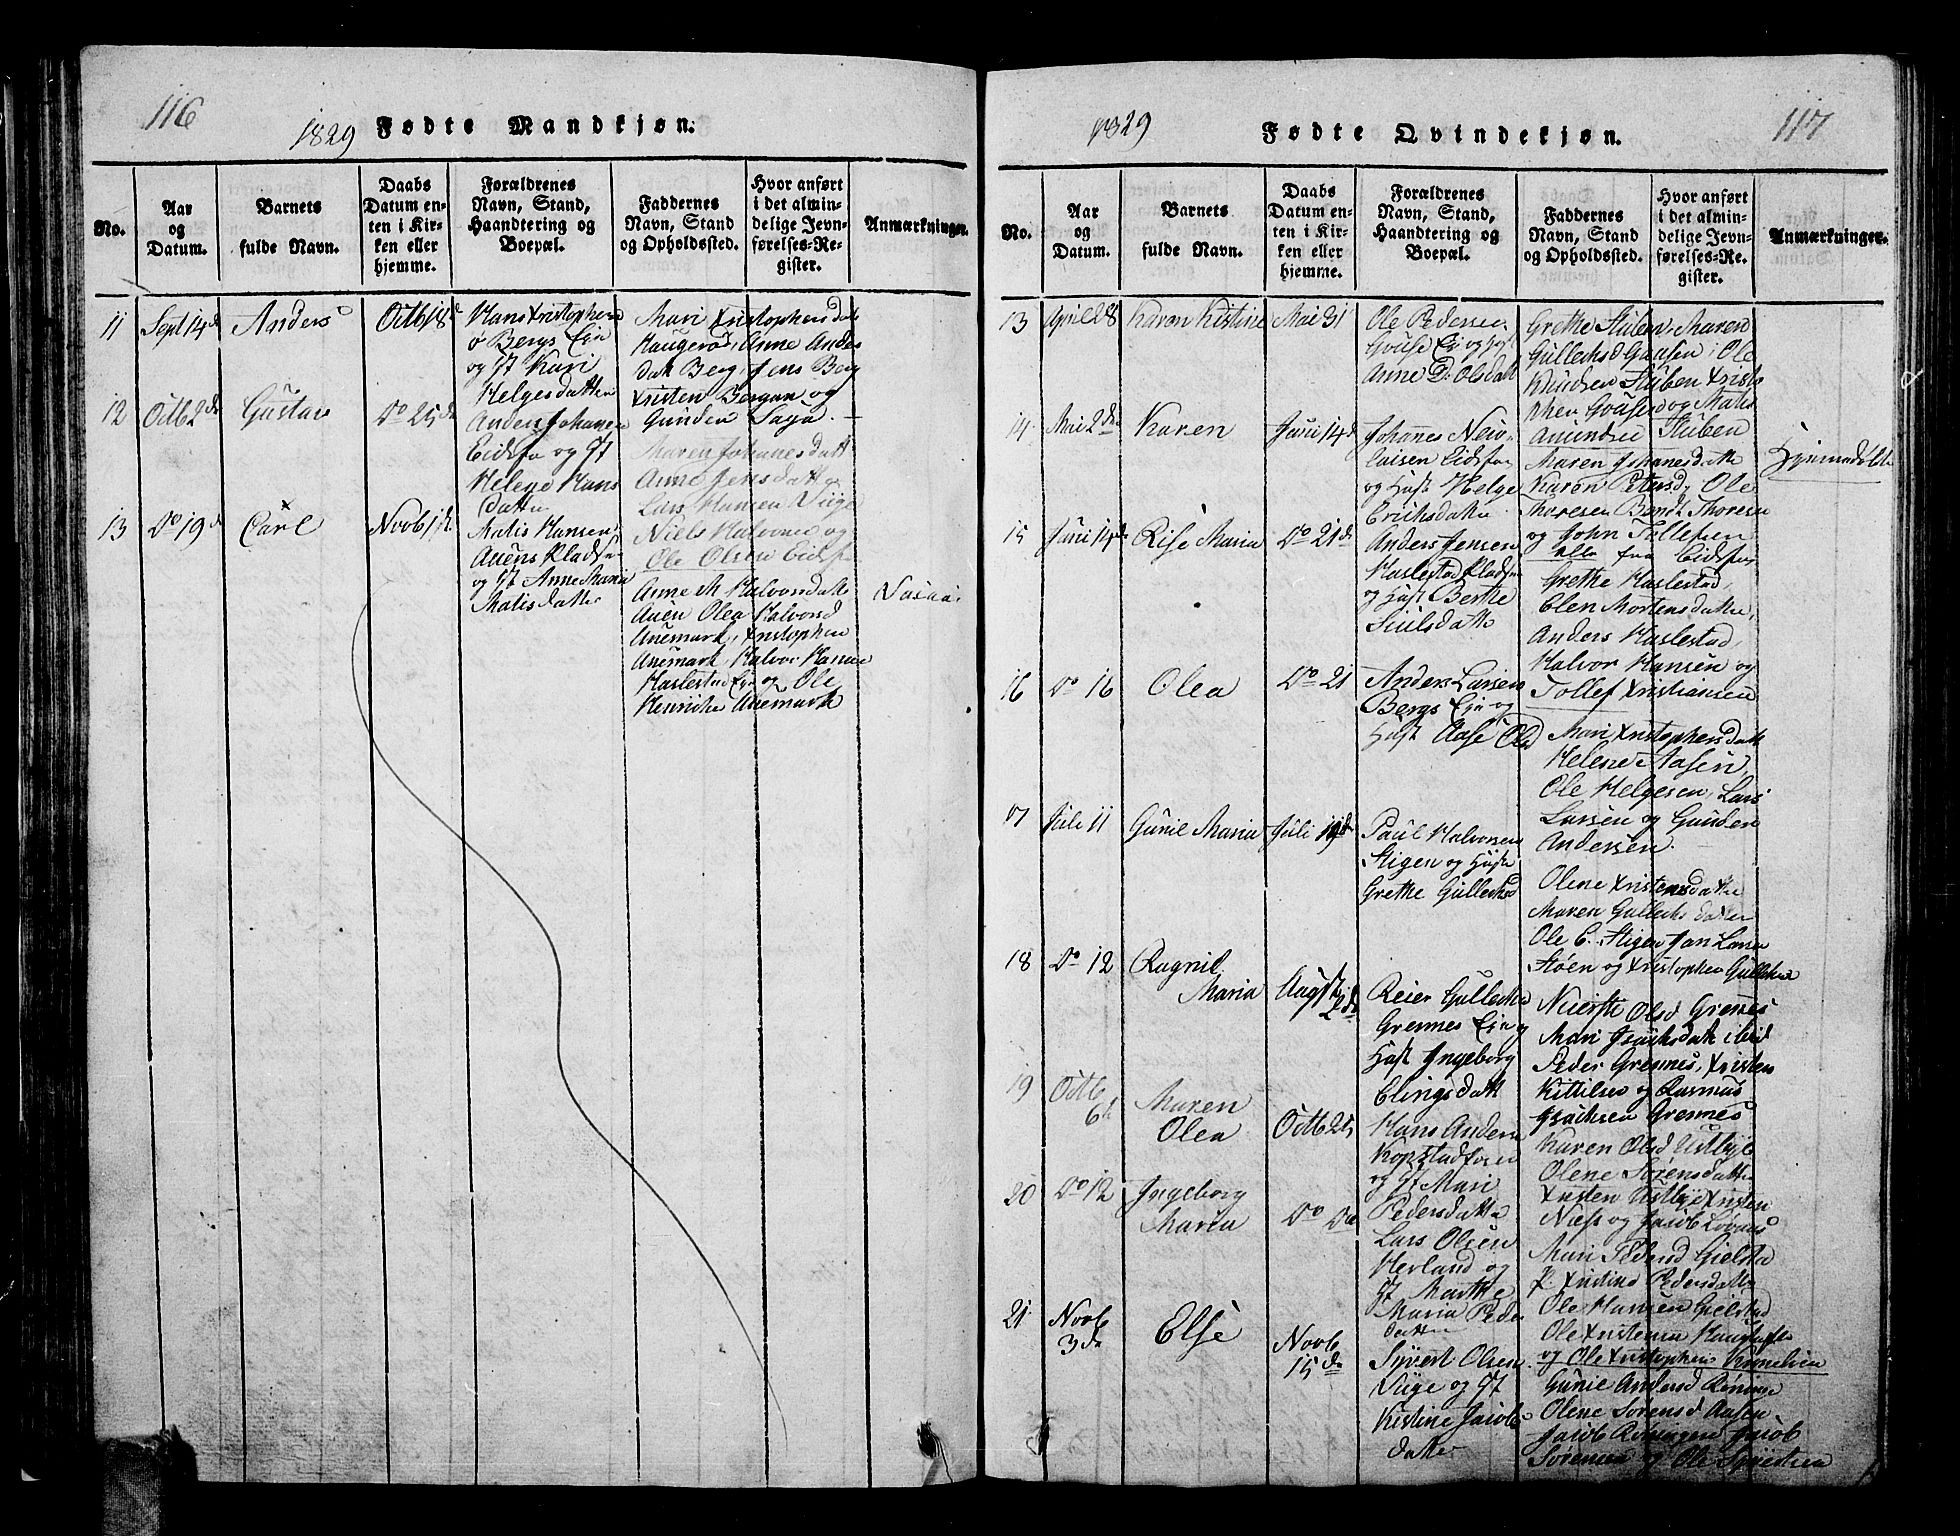 116
1829 Fødte Mandkjøn.
No.
Aar
og
Datum.
Barnets
fulde Navn.
Daabs
Datum en-
ten i Kir-
ken eller
hjemme.
Forældrenes
Navn, Stand,
Haandtering og
Boepæl.
Faddernes
Navn, Stand
og Opholdssted.
Hvor anført
i det almin-
delige Jevn-
førelses-Re-
gister.
Anmærkninger.
11
Sept 14d
Anders
Octb 18d
Hans Xristophersen
Bergs Eje
og H Kari
Helgesdatter
Mari Xristophersdatt
Haugerød, Anne Anders
datt Berg, Jens Berg
Xristen Bergan og
Gunder
12
Octb 2d
Gustav
Do 25d
Anders Johanesen
Eidsfos og H
Helene Hans
datter
Maren Johanesdatt
Anne Jensdatter
Lars Hansen Viige
Niels Halvorsen og
Ole Olsen Eidsfos
13
Do 19d
Carl
Novb 1d
Matis Hansen
Auens Pladsen
og H Anne Maria
Matisdatter
Anne M Halvorsdatt
Auen Olea Halvorsd
Anemark, Xristopher
Anemark, Halvor Hansen
Haslestad Eje og Ole
Henriche Anemark
117
1829
Fødte Qvindekjøn.
No.
Aar
og
Datum.
Barnets
fulde Navn.
Daabs
Datum en-
ten i Kir-
ken eller
hjemme.
Forældrenes
Navn, Stand,
Haandtering og
Boepæl.
Faddernes
Navn, Stand
og Opholdssted.
Hvor anført
i det almin-
delige Jevn-
førelses-Re-
gister.
Anmærkninger.
13
April 28
Karen Kistine
Mai 31
Ole Pedersen
Anne D: Olsdatt
Grethe Stuben, Maren
Gullechsd Gausen, Ole
Knudsen Stuben Xristo
pher og Matis
Amundsen Stuben
14
Mai 2d
Karen
Juni 14d
Johanes Nico-
laisen Eidsfos
og Hust Helge
Erichsdatter
Maren Johanesdatter
Karen Petersd, Ole
Thoresen Bernt Thoresen
og John Tollefsen
alle fra Eidsfos
Hjemmedøbte
15
Juni 14d
Rise Maria
Do 21d
Anders Jensen
Haslestad Pladsen
og Hust Berthe
Siulsdatter
Grethe Haslestad,
Elen Mortensdatter,
Anders Haslestad,
Halvor Hansen og
Tollef Xristiansen
16
Do 16
Olea
Do 21
Anders Larsen
Bergs Eje og
Hust Aase Olsd
Mari Xristophersdatt
Helene Aasen,
Ole Helgesen, Lars
Larsen og Gunder
Andersen.
17
Juli 11
Gunil Maria
Juli 19d
Paul Halvorsen
Stigen og Hustr
Grethe Gullechsd
Olene Xristensdatter
Maren Gullechsdatter
Ole E. Stigen Jan Larsen
Støen og Xristopher Gullechsen
18
Do 12
Ragnil
Maria
Augst 2d
Reier Gullechsen
Grennes Eje og
Hust Ingeborg
Elingsdatt
Olsd Grennes
Mari Isachsdatt ibid
Peder Grennes, Xristen
Kittilsen og Rasmus
Isachsen Grennes
19
Octb
6t
Maren
Olea
Octb 25
Hans Andersen
Kopstadfosen
og H Mari
Pedersdatter
Karen Olsd Ustbye
Olene Sørensdatter
Xristen Ustbye Xristen
Næss og Jacob
20
Do 12
Ingeborg
Maria
Do Do
Lars Olsen
Herland og
H Marthe
Maria Peders
datter
Mari Pedersd Gielstad
Xristine Pedersdatter
Ole Hansen Gielstad
Ole Xristensen
og Ole Xristophersen
21.
Novb
3d
Else
Novb
15d
Syvert Olsen
Viige og H
Kistine Jacobs-
datter
Gunil Andersd
Olene Sørensd Aasen
Jacob Jacob
Sørensen og Ole Syvertsen